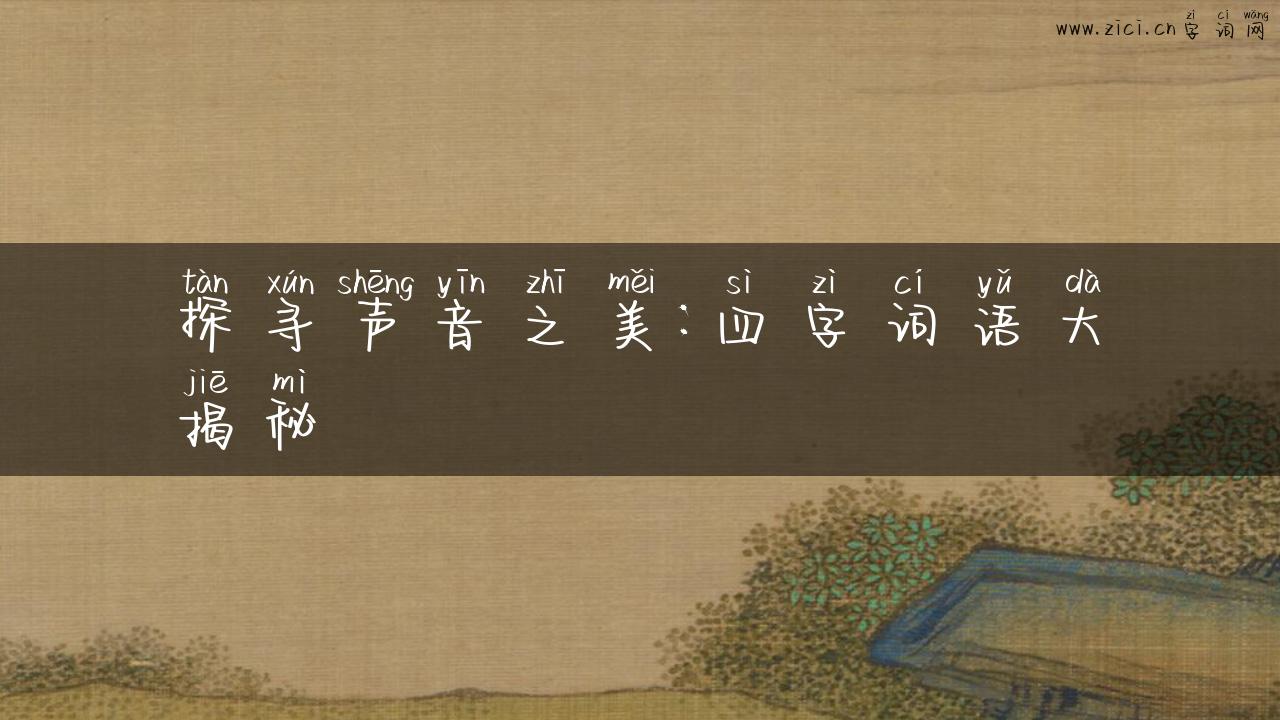 zì cí wǎng
www.zici.cn 字词网
tàn xún shēng yīn zhī měi sì zì cí yǔ dà
探寻声音之美：四字词语大
jiē mì
揭秘